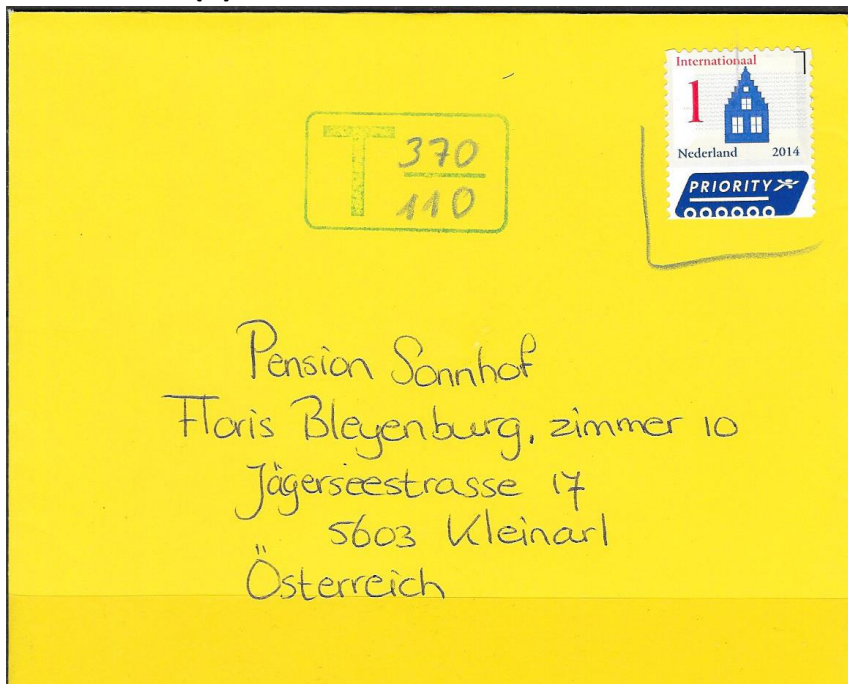 Internationaal
1
Nederland 2014
PRIORITY
T 370
110
Pension Sonnhof
Floris Bleyenburg, zimmer 10
Jägerseestrasse 17
5603 Kleinarl
Österreich